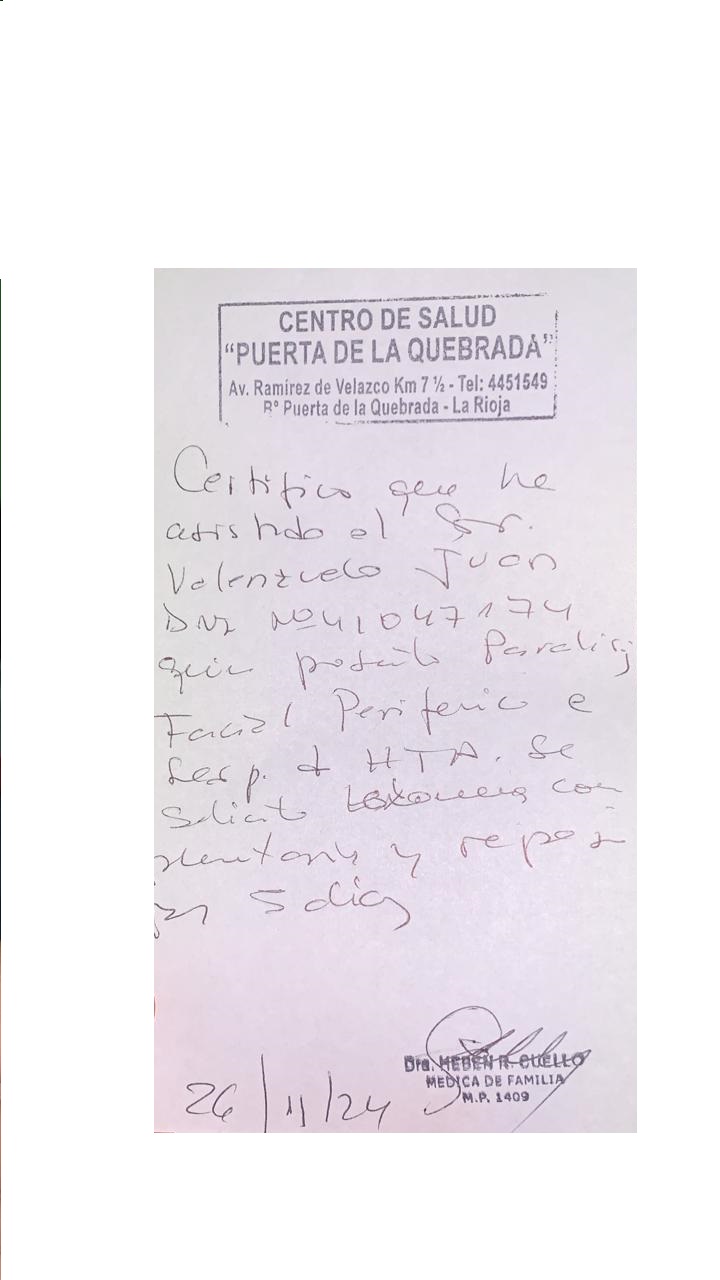 CENTRO DE SALUD
“PUERTA DE LA QUEBRADA”
Av. Ramirez de Velazco Km 7 ½ - Tel: 4451549
Bº Puerta de la Quebrada - La Rioja
Certifico que he
asistido al Sr.
Valenzuela Juan
DNI Nº 41047174
quien Paralisis
Facial Periferica e
HTA. Se
Solicita com
plementario y reposo
por 5 dias
26/11/24
Dra. HEBEN R. CUELLO
MEDICA DE FAMILIA
M.P. 1409